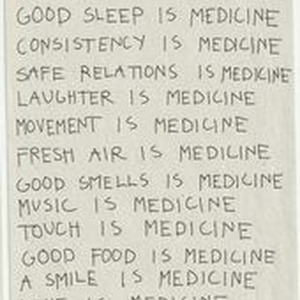 GOOD SLEEP IS MEDICINE
CONSISTENCY IS MEDICINE
SAFE RELATIONS IS MEDICINE
LAUGHTER IS MEDICINE
MOVEMENT IS MEDICINE
FRESH AIR IS MEDICINE
GOOD SMELLS IS MEDICINE
MUSIC IS MEDICINE
TOUCH IS MEDICINE
GOOD FOOD IS MEDICINE
A SMILE IS MEDICINE
IS MEDICINE